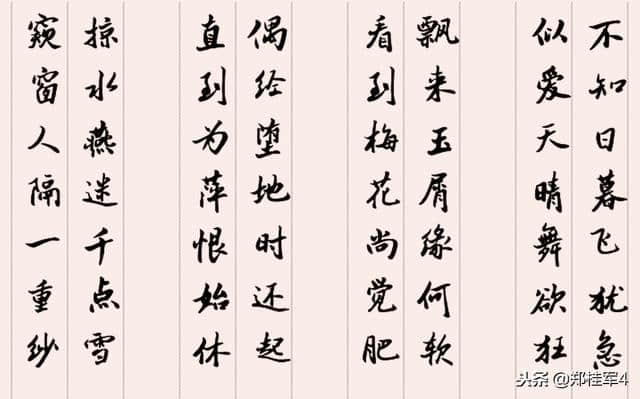 不知日暮飞犹急
似爱天晴舞欲狂
飘来玉屑缘何软
看到梅花尚觉肥
偶经堕地时还起
直到为萍恨始休
掠水燕迷千点雪
窥窗人隔一重纱
头条 @郑桂军4